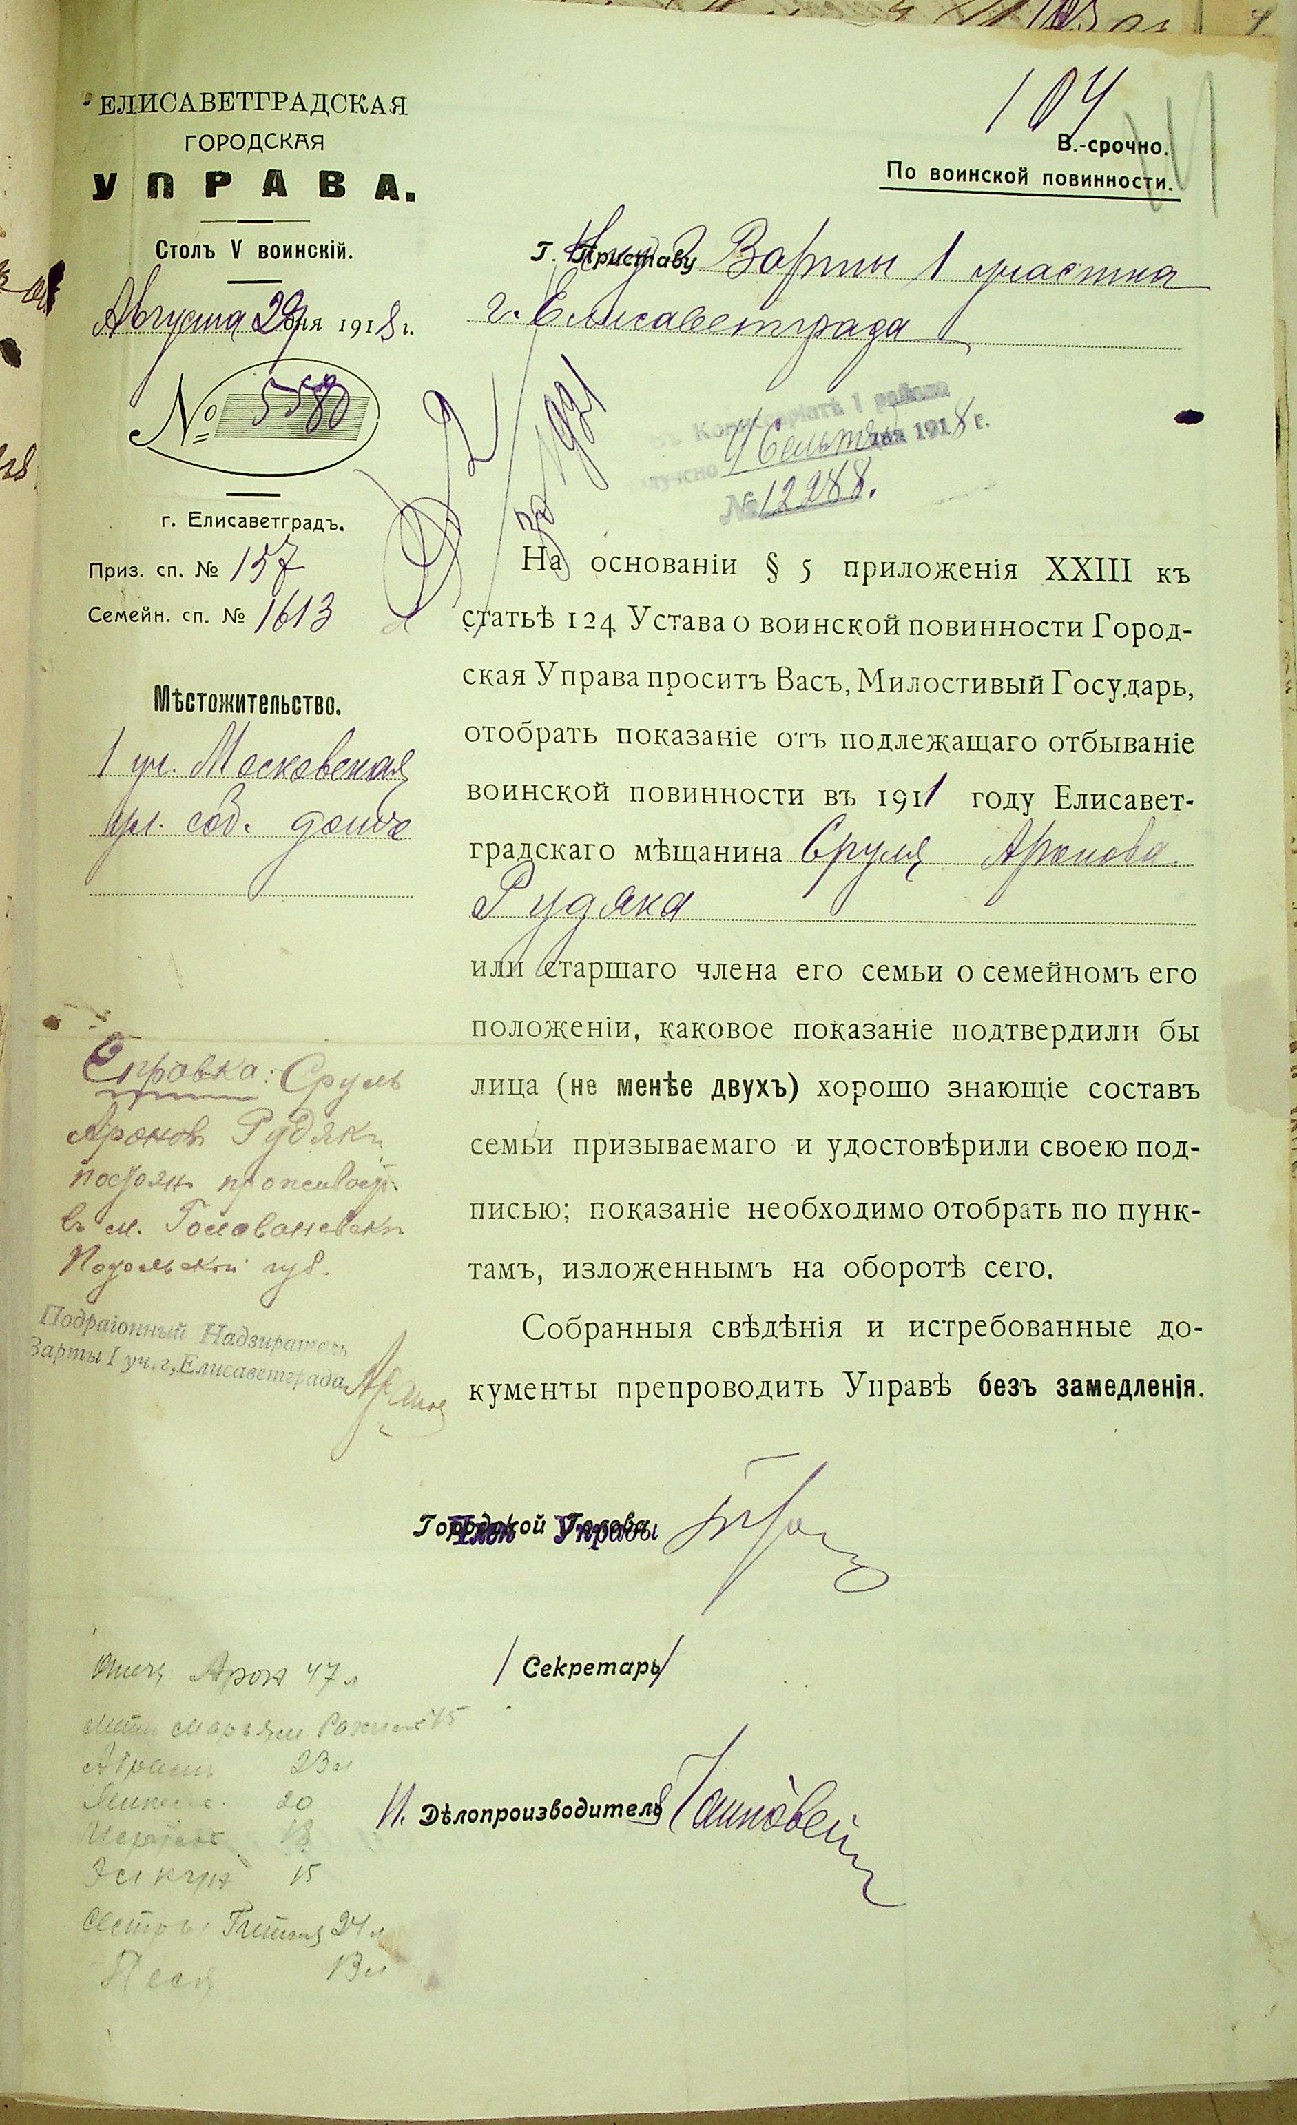 104
ЕЛИСАВЕТГРАДСКАЯ
ГОРОДСКАЯ
УПРАВА.
Столъ V воинскій.
Августа 29 дня 1918 г.
№ 5580
г. Елисаветградъ.
Приз. сп. № 157
Семейн. сп. № 1613
Мѣстожительство.
1 уч. Московская
ул. соб. домъ
В.-срочно.
По воинской повинности.
Г. Приставу Варты 1 участка
г. Елисаветграда
Комиссаріатъ 1 района
получено 4 Сентяб дня 1918 г.
№ 12288.
за 1921
На основаніи § 5 приложенія XXIII къ
статьѣ 124 Устава о воинской повинности Город-
ская Управа проситъ Васъ, Милостивый Государь,
отобрать показаніе отъ подлежащаго отбываніе
воинской повинности въ 1911 году Елисавет-
градскаго мѣщанина Сруля Аронова
Рудяка
или старшаго члена его семьи о семейномъ его
положеніи, каковое показаніе подтвердили бы
лица (не менѣе двухъ) хорошо знающіе составъ
семьи призываемаго и удостовѣрили своею под-
писью; показаніе необходимо отобрать по пунк-
тамъ, изложеннымъ на оборотѣ сего.
Собранныя свѣдѣнія и истребованные до-
кументы препроводить Управѣ безъ замедленія.
Справка: Сруль
Ароновъ Рудякъ
постоян проживает
въ м. Голованевскъ
Подольской губ.
Подраіонный Надзиратель
Варты I уч. г, Елисаветграда
Городской Голова
Членъ Управы
/ Секретарь /
И. Дѣлопроизводителя
Отец Арон 47 л
мать Марьям 45
Абрам 23 л
20
18
15
сестры 24 л
Песя 13 л